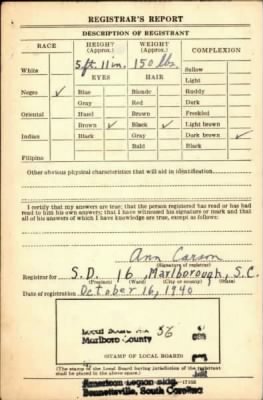 REGISTRAR'S REPORT
DESCRIPTION OF REGISTRANT
RACE HEIGHT (Approx.) WEIGHT (Approx.) COMPLEXION
White 5 ft. 11 in. 150 lbs. Sallow
EYES HAIR Light
Negro ✓ Blue Blonde Ruddy
Gray Red Dark
Oriental Hazel Brown Freckled
Brown ✓ Black ✓ Light brown
Indian Black Gray Dark brown ✓
Bald Black
Filipino
Other obvious physical characteristics that will aid in identification
I certify that my answers are true; that the person registered has read or has had
read to him his own answers; that I have witnessed his signature or mark and that
all of his answers of which I have knowledge are true, except as follows:
Ann Carson
(Signature of registrar)
Registrar for S.D. 16, Marlborough, S.C.
(Precinct) (Ward) (City or county) (State)
Date of registration October 16, 1940
Local Board 56
Marlboro County
(STAMP OF LOCAL BOARD)
(The stamp of the Local Board having jurisdiction of the registrant
shall be placed in the above space.)
American Legion Bldg.
Bennettsville, South Carolina